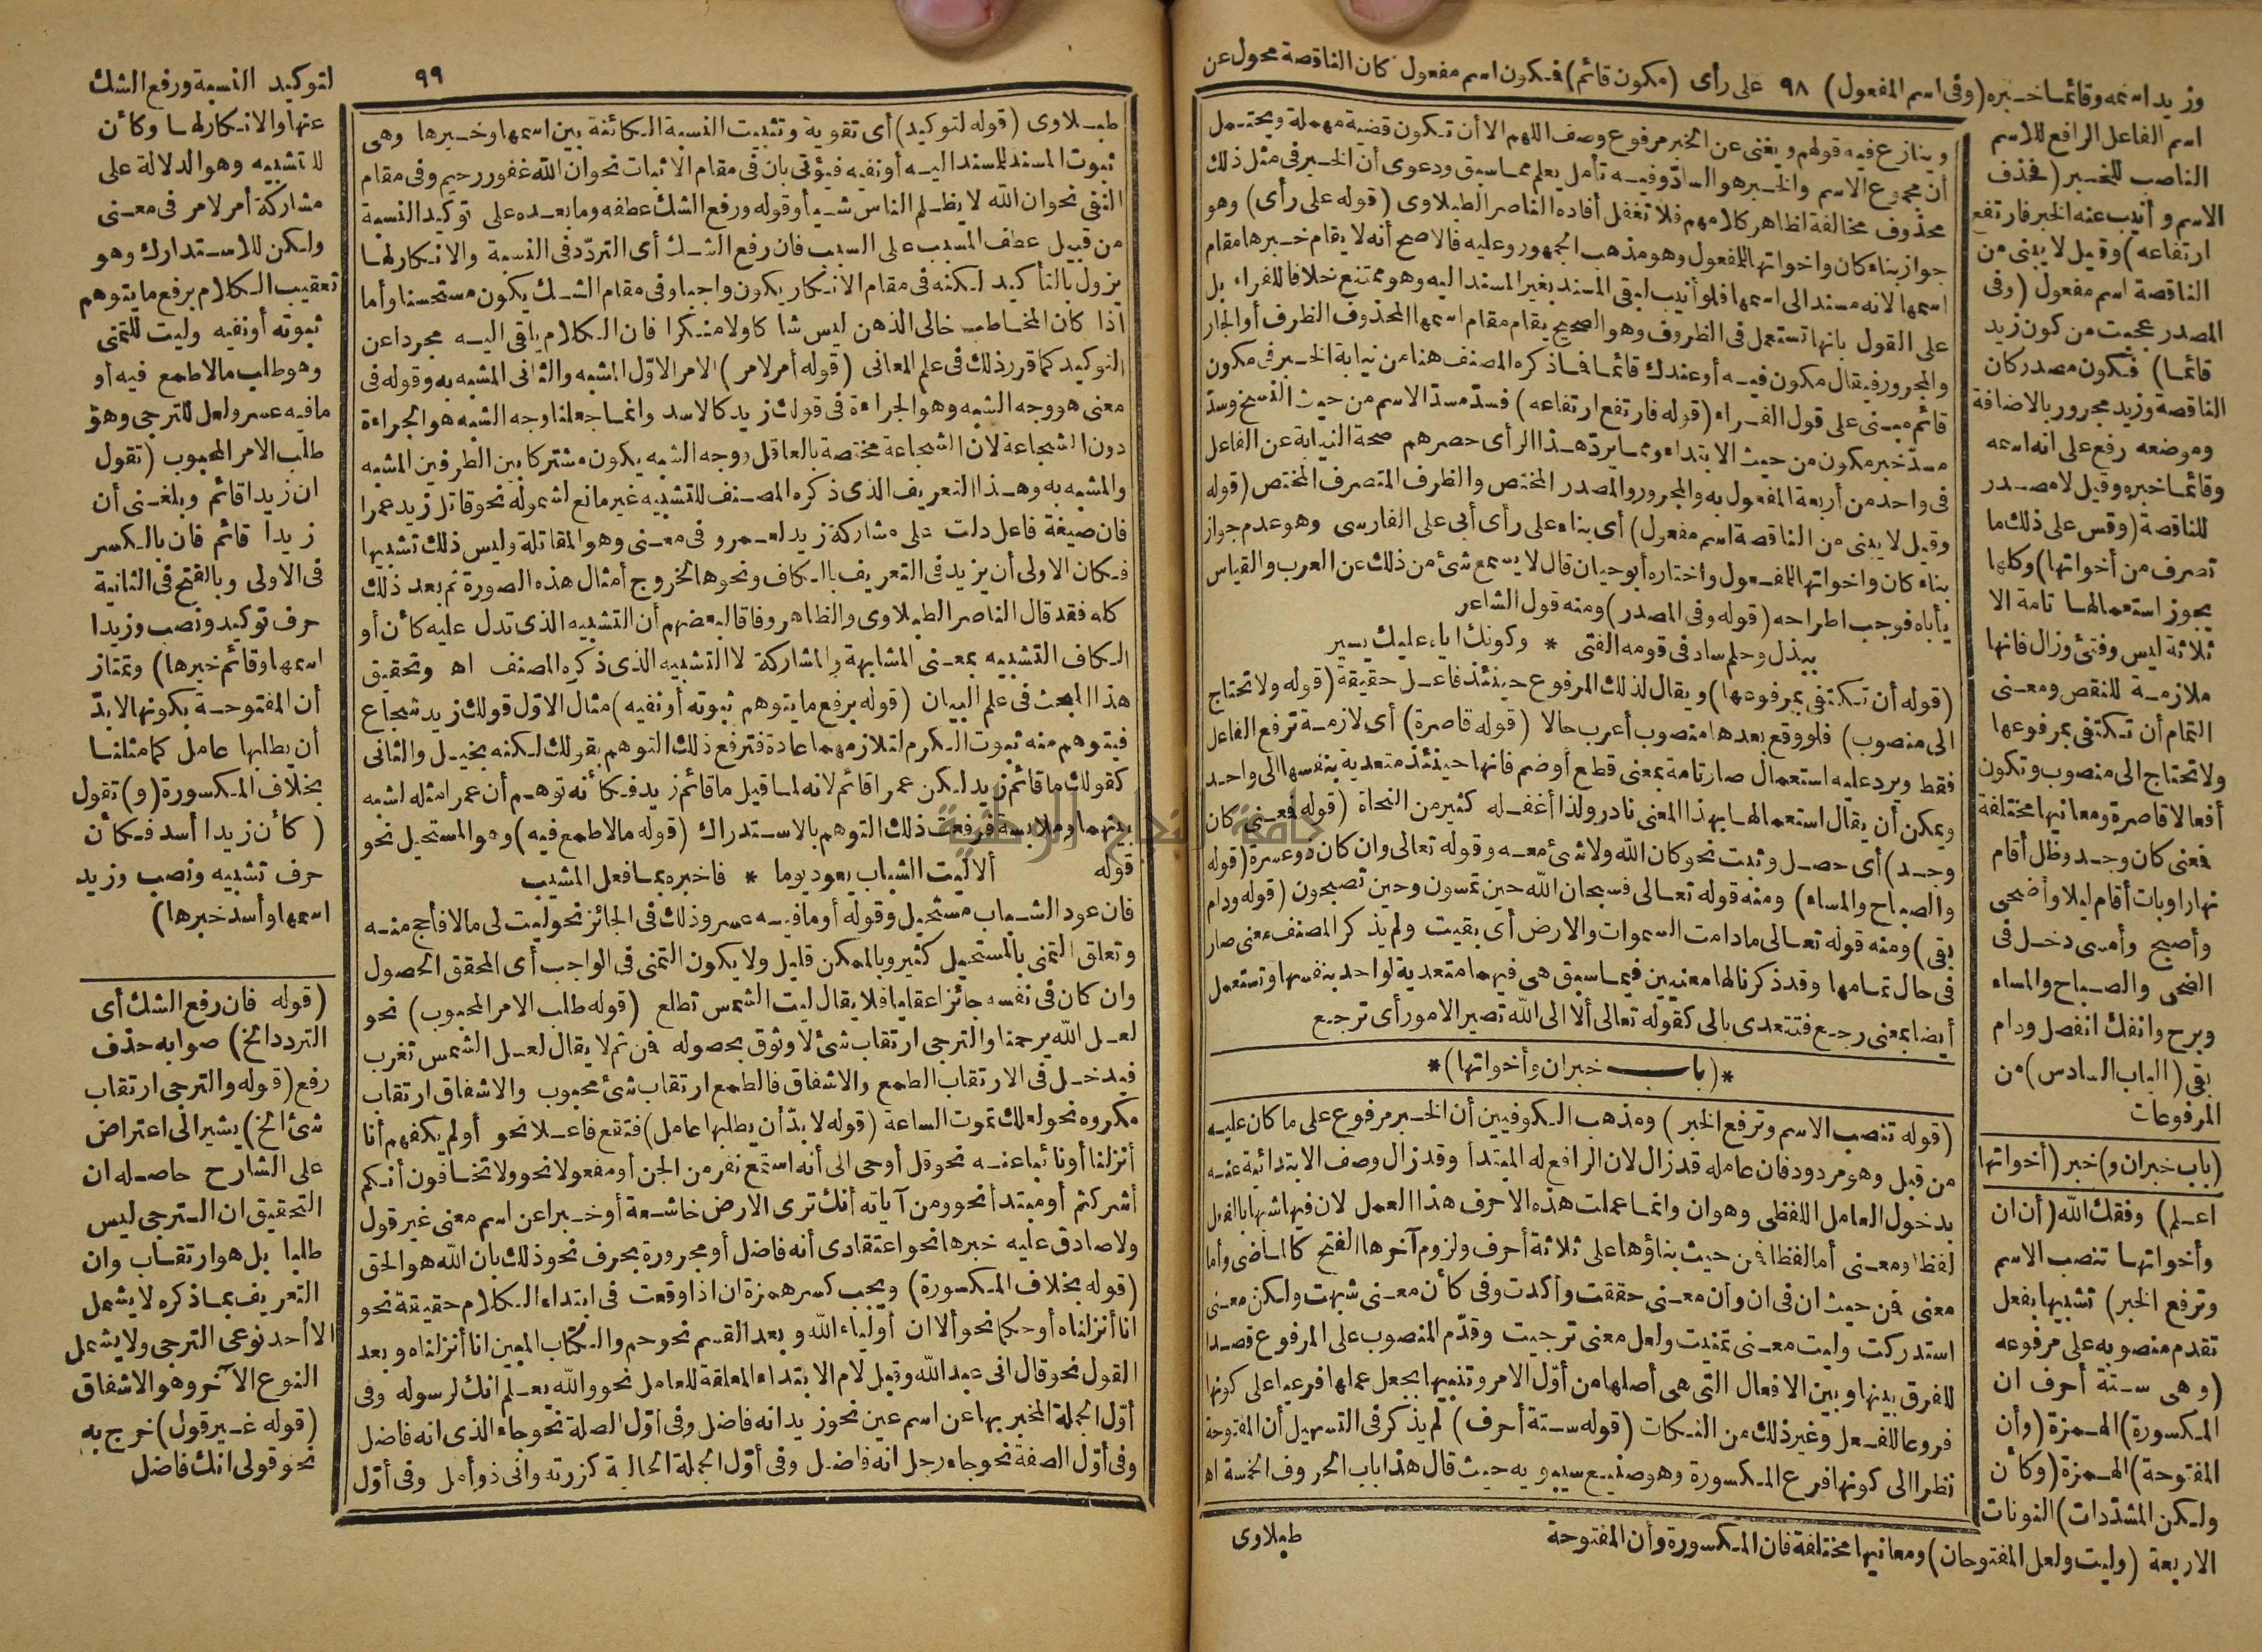 وزيد اسمه وقائما خبره (وفى اسم المفعول) ٩٨ على رأى (مكون قائم) فمكون اسم مفعول كان الناقصة محول عن
اسم الفاعل الرافع للاسم
الناصب للخبر (فحذف
الاسم وأنيب عنه الخبر فارتفع
ارتفاعه) وقيل لا يبنى من
الناقصة اسم مفعول (وفى
المصدر عجبت من كون زيد
قائما) فكون مصدر كان
الناقصة وزيد مجرور بالاضافة
وموضعه رفع على انه اسمه
وقائما خبره وقيل لا مصدر
للناقصة (وقس على ذلك ما
تصرف من أخواتها) وكلها
يجوز استعمالها تامة الا
ثلاثة ليس وفتئ وزال فانها
ملازمة للنقص ومعنى
التمام أن تكتفى بمرفوعها
ولا تحتاج الى منصوب وتكون
أفعالا قاصرة ومعانيها مختلفة
فمعنى كان وجد وظل أقام
نهارا وبات أقام ليلا وأضحى
وأصبح وأمسى دخل فى
الضحى والصباح والمساء
وبرح وانفك انفصل ودام
بقى (الباب السادس) من
المرفوعات
(باب خبران و) خبر (أخواتها
اعلم) وفقك الله (أن ان
وأخواتها تنصب الاسم
وترفع الخبر) تشبيها بفعل
تقدم منصوبه على مرفوعه
(وهى ستة أحرف ان
المكسورة) الهمزة (وأن
المفتوحة) الهمزة (وكأن
ولكن المشددات) النونات
الاربعة (وليت ولعل المفتوحان) ومعانيها مختلفة فان المكسورة وأن المفتوحة
وينازع فيه قولهم ويغنى عن الخبر مرفوع وصف اللهم الا أن تكون قضية مهملة ويحتمل
أن مجموع الاسم والخبر هو الساد وفيه تأمل يعلم مما سبق ودعوى أن الخبر فى مثل ذلك
محذوف مخالفة لظاهر كلامهم فلا تغفل أفاده الناصر الطبلاوى (قوله على رأى) وهو
جواز بناء كان واخواتها للمفعول وهو مذهب الجمهور وعليه فالاصح أنه لا يقام خبرها مقام
اسمها لانه مسند الى اسمها فلو أنيب لبقى المسند بغير المسند اليه وهو ممتنع خلافا للفراء بل
على القول بانها تستعمل فى الظروف وهو الصحيح يقام مقام اسمها المحذوف الظرف أو الجار
والمجرور فيقال مكون فيه أو عندك قائما فما ذكره المصنف هنا من نيابة الخبر فى مكون
قائم مبنى على قول الفراء (قوله فارتفع ارتفاعه) فسد مسد الاسم من حيث النسخ وسد
مسد خبر مكون من حيث الابتداء ومما يرد هذا الرأى حصرهم صحة النيابة عن الفاعل
فى واحد من أربعة المفعول به والمجرور والمصدر المختص والظرف المتصرف المختص (قوله
وقيل لا يبنى من الناقصة اسم مفعول) أى بناء على رأى أبى على الفارسى وهو عدم جواز
بناء كان واخواتها للمفعول واختاره أبو حيان قال لا يسمع شئ من ذلك عن العرب والقياس
يأباه فوجب اطراحه (قوله وفى المصدر) ومنه قول الشاعر
ببذل وحلم ساد فى قومه الفتى * وكونك اياه عليك يسير
(قوله أن تكتفى بمرفوعها) ويقال لذلك المرفوع حينئذ فاعل حقيقة (قوله ولا تحتاج
الى منصوب) فلو وقع بعدها منصوب أعرب حالا (قوله قاصرة) أى لازمة ترفع الفاعل
فقط ويرد عليه استعمال صار تامة بمعنى قطع أو ضم فانها حينئذ متعدية بنفسها الى واحد
ويمكن أن يقال استعمالها بهذا المعنى نادر ولذا أغفله كثير من النحاة (قوله فمعنى كان
وجد) أى حصل وثبت نحو كان الله ولا شئ معه وقوله تعالى وان كان ذو عسرة (قوله
والصباح والمساء) ومنه قوله تعالى فسبحان الله حين تمسون وحين تصبحون (قوله ودام
بقى) ومنه قوله تعالى ما دامت السموات والارض أى بقيت ولم يذكر المصنف معنى صار
فى حال تمامها وقد ذكرنا لها معنيين فيما سبق هى فيهما متعدية لواحد بنفسها وتستعمل
أيضا بمعنى رجع فتتعدى بالى كقوله تعالى ألا الى الله تصير الامور أى ترجع
*(باب خبران وأخواتها)*
(قوله تنصب الاسم وترفع الخبر) ومذهب الكوفيين أن الخبر مرفوع على ما كان عليه
من قبل وهو مردود فان عامله قد زال لان الرافع له المبتدأ وقد زال وصف الابتدائية عنه
بدخول العامل اللفظى وهو ان وانما عملت هذه الاحرف هذا العمل لان فيها شبها بالفعل
لفظا ومعنى أما لفظا فمن حيث بناؤها على ثلاثة أحرف ولزوم آخرها الفتح كالماضى وأما
معنى فمن حيث ان فى ان وأن معنى حققت وأكدت وفى كأن معنى شبهت ولكن معنى
استدركت وليت معنى تمنيت ولعل معنى ترجيت وقدم المنصوب على المرفوع قصدا
للفرق بينها وبين الافعال التى هى أصلها من أول الامر وتنبيها بجعل عملها فرعيا على كونها
فروعا للفعل وغير ذلك من النكات (قوله ستة أحرف) لم يذكر فى التسهيل أن المفتوحة
نظرا الى كونها فرع المكسورة وهو صنيع سيبويه حيث قال هذا باب الحروف الخمسة اه
طبلاوى
٩٩
لتوكيد النسبة ورفع الشك
عنها والانكار لها وكأن
للتشبيه وهو الدلالة على
مشاركة أمر لامر فى معنى
ولكن للاستدراك وهو
تعقيب الكلام برفع ما يتوهم
ثبوته أو نفيه وليت للتمنى
وهو طلب ما لا طمع فيه أو
ما فيه عسر ولعل للترجى وهو
طلب الامر المحبوب (تقول
ان زيدا قائم وبلغنى أن
زيدا قائم فان بالكسر
فى الاولى وبالفتح فى الثانية
حرف توكيد ونصب وزيدا
اسمها وقائم خبرها) وتمتاز
أن المفتوحة بكونها لا بد
أن يطلبها عامل كما مثلنا
بخلاف المكسورة (و) تقول
(كأن زيدا أسد فكأن
حرف تشبيه ونصب وزيد
اسمها وأسد خبرها)
(قوله فان رفع الشك أى
التردد الخ) صوابه حذف
رفع (قوله والترجى ارتقاب
شئ الخ) يشير الى اعتراض
على الشارح حاصله ان
التحقيق ان الترجى ليس
طلبا بل هو ارتقاب وان
التعريف بما ذكره لا يشمل
الا أحد نوعى الترجى ولا يشمل
النوع الآخر وهو الاشفاق
(قوله غير قول) خرج به
نحو قولى انك فاضل
طبلاوى (قوله لتوكيد) أى تقوية وتثبيت النسبة الكائنة بين اسمها وخبرها وهى
ثبوت المسند للمسند اليه أو نفيه فيؤتى بان فى مقام الاثبات نحو ان الله غفور رحيم وفى مقام
النفى نحو ان الله لا يظلم الناس شيأ وقوله ورفع الشك عطفه وما بعده على توكيد النسبة
من قبيل عطف المسبب على السبب فان رفع الشك أى التردد فى النسبة والانكار لها
يزول بالتأكيد لكنه فى مقام الانكار يكون واجبا وفى مقام الشك يكون مستحسنا وأما
اذا كان المخاطب خالى الذهن ليس شاكا ولا منكرا فان الكلام يلقى اليه مجردا عن
التوكيد كما قرر ذلك فى علم المعانى (قوله أمر لامر) الامر الاول المشبه والثانى المشبه به وقوله فى
معنى هو وجه الشبه وهو الجراءة فى قولك زيد كالاسد وانما جعلنا وجه الشبه هو الجراءة
دون الشجاعة لان الشجاعة مختصة بالعاقل ووجه الشبه يكون مشتركا بين الطرفين المشبه
والمشبه به وهذا التعريف الذى ذكره المصنف للتشبيه غير مانع لشموله نحو قاتل زيد عمرا
فان صيغة فاعل دلت على مشاركة زيد لعمرو فى معنى وهو المقاتلة وليس ذلك تشبيها
فكان الاولى أن يزيد فى التعريف بالكاف ونحوها لتخرج أمثال هذه الصورة ثم بعد ذلك
كله فقد قال الناصر الطبلاوى والظاهر وفاقا لبعضهم أن التشبيه الذى تدل عليه كأن أو
الكاف التشبيه بمعنى المشابهة والمشاركة لا التشبيه الذى ذكره المصنف اه وتحقيق
هذا المبحث فى علم البيان (قوله برفع ما يتوهم ثبوته أو نفيه) مثال الاول قولك زيد شجاع
فيتوهم منه ثبوت الكرم لتلازمهما عادة فترفع ذلك التوهم بقولك لكنه بخيل والثانى
كقولك ما قائم زيد لكن عمرا قائم لانه لما قيل ما قائم زيد فكأنه توهم أن عمرا مثله لشبه
بينهما وملابسة فرفعت ذلك التوهم بالاستدراك (قوله ما لا طمع فيه) وهو المستحيل نحو
قوله ألا ليت الشباب يعود يوما * فاخبره بما فعل المشيب
فان عود الشباب مستحيل وقوله أو ما فيه عسر وذلك فى الجائز نحو ليت لى مالا فأحج منه
وتعلق التمنى بالمستحيل كثير وبالممكن قليل ولا يكون التمنى فى الواجب أى المحقق الحصول
وان كان فى نفسه جائزا عقليا فلا يقال ليت الشمس تطلع (قوله طلب الامر المحبوب) نحو
لعل الله يرحمنا والترجى ارتقاب شئ لا وثوق بحصوله فمن ثم لا يقال لعل الشمس تغرب
فيدخل فى الارتقاب الطمع والاشفاق فالطمع ارتقاب شئ محبوب والاشفاق ارتقاب
مكروه نحو لعلك تموت الساعة (قوله لا بد أن يطلبها عامل) فتقع فاعلا نحو أو لم يكفهم أنا
أنزلنا أو نائبا عنه نحو قل أوحى الى أنه استمع نفر من الجن أو مفعولا نحو ولا تخافون أنكم
أشركتم أو مبتدأ نحو ومن آياته أنك ترى الارض خاشعة أو خبرا عن اسم معنى غير قول
ولا صادق عليه خبرها نحو اعتقادى أنه فاضل أو مجرورة بحرف نحو ذلك بان الله هو الحق
(قوله بخلاف المكسورة) ويجب كسر همزة ان اذا وقعت فى ابتداء الكلام حقيقة نحو
انا أنزلناه أو حكما نحو ألا ان أولياء الله وبعد القسم نحو حم والكتاب المبين انا أنزلناه وبعد
القول نحو قال انى عبد الله وقبل لام الابتداء المعلقة للعامل نحو والله يعلم انك لرسوله وفى
أول الجملة المخبر بها عن اسم عين نحو زيد انه فاضل وفى أول الصلة نحو جاء الذى انه فاضل
وفى أول الصفة نحو جاء رجل انه فاضل وفى أول الجملة الحالية كزرته وانى ذو أمل وفى أول
جامعة النجاح الوطنية